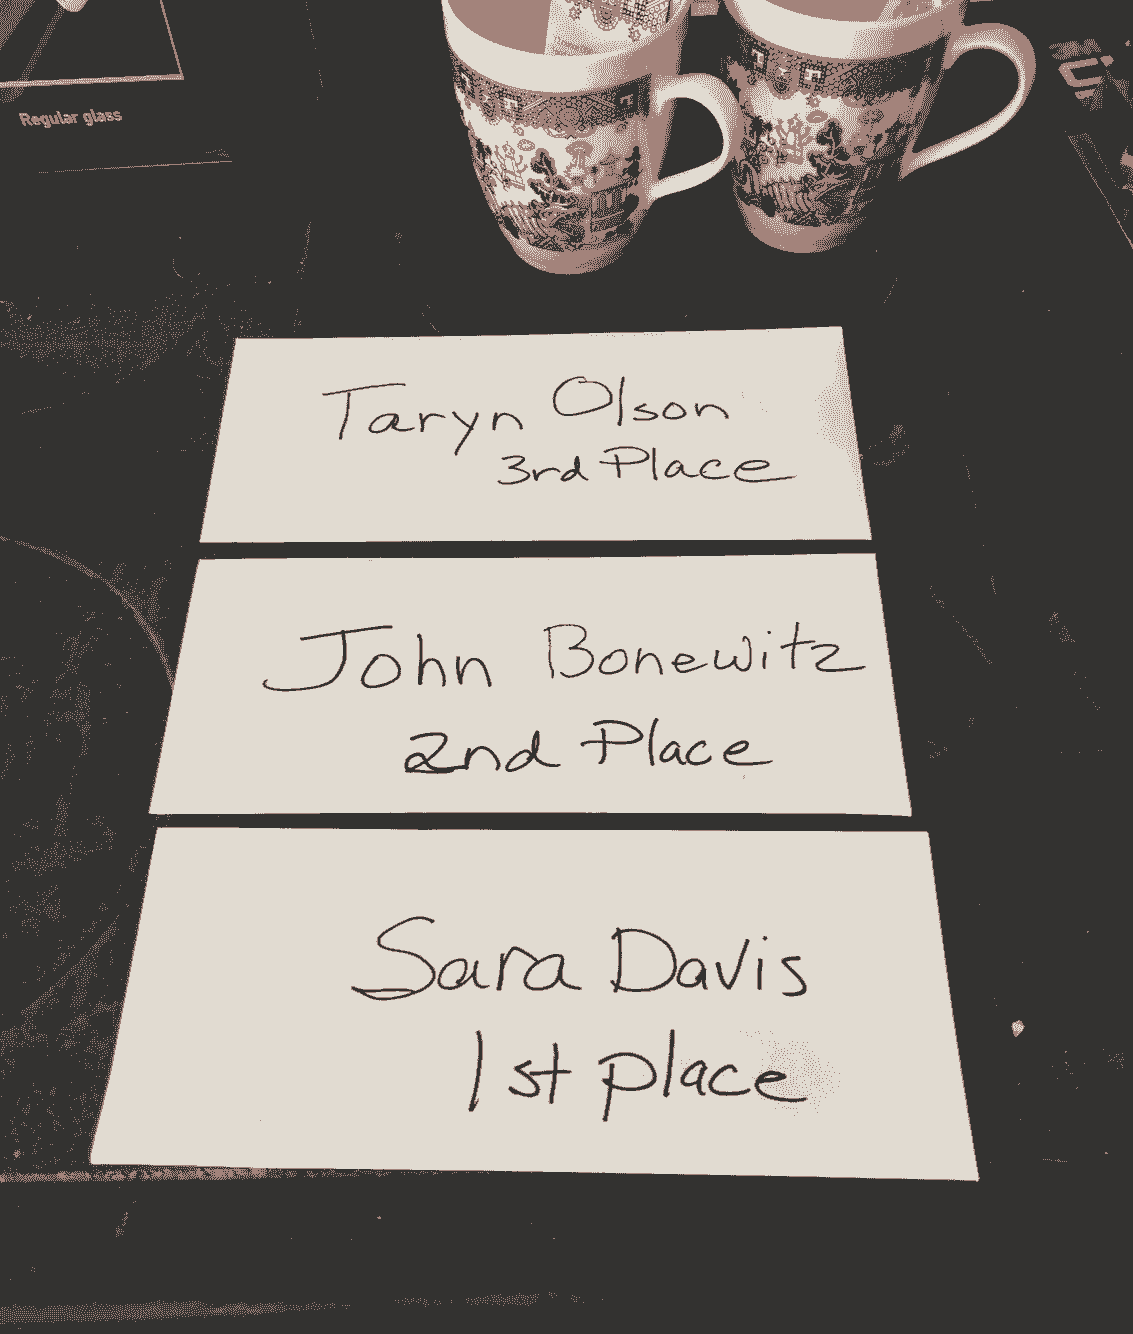 Regular glass
Taryn Olson
3rd Place
John Bonewitz
2nd Place
Sara Davis
1st place